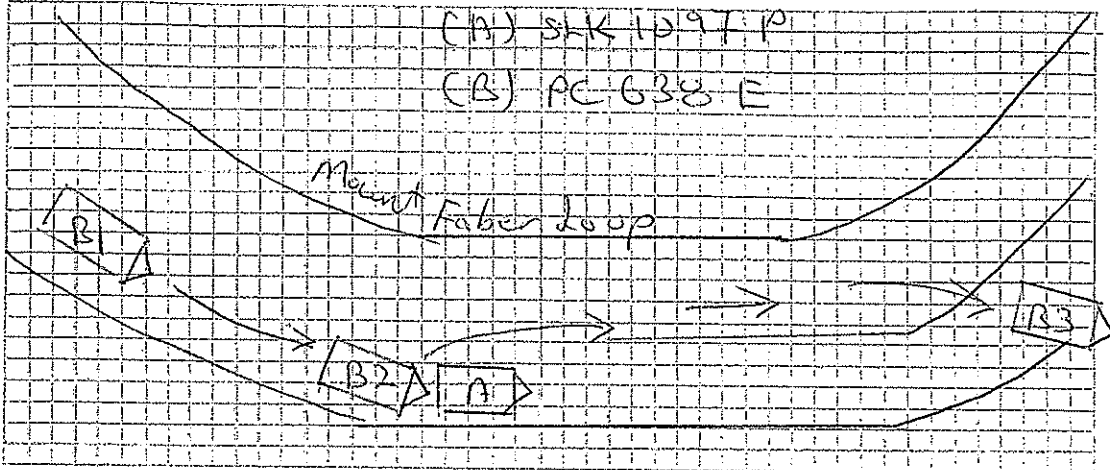 (A) SLK 1097 P
(B) PC 638 E
Mount Faber Loop
B1
B2
A
B3